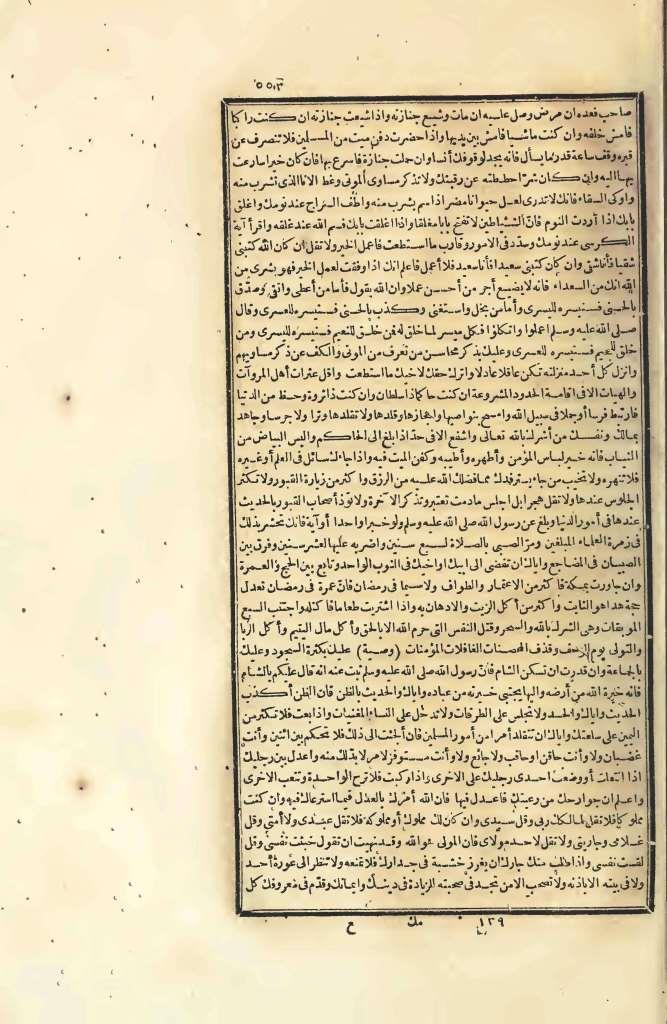 ٥٥٣
صاحب فعده ان مرض وصل عليه ان مات وشيع جنازته واذا شيعت جنازته ان كنت راكبا
فامش خلفه وان كنت ماشيا فامش بين يديها واذا حضرت دفن ميت من المسلمين فلا تنصرف عن
قبره وقف ساعة قدر ما يسأل فانه يجد لوقوفك أنسا وان حملت جنازة فاسرع بها فان كان خيرا سارعت
بها اليه وان كان شرا حططته عن رقبتك ولا تذكر مساوى الموتى وغط الاناء الذى تشرب منه
واوكى السقاء فانك لا تدرى لعل حيوانا مضرا اذا سم يشرب منه واطف السراج عند نومك واغلق
بابك اذا أردت النوم فان الشياطين لا تفتح بابا مغلقا واذا اغلقت بابك فسم الله عند غلقه واقرأ آية
الكرسى عند نومك وسدد فى الامور وقارب ما استطعت فاعمل الخير ولا تقل ان كان الله كتبنى
شقيا فأنا شقى وان كان كتبنى سعيدا فأنا سعيد فلا أعمل فاعلم انك اذا وفقت لعمل الخير فهو بشرى من
الله انك من السعداء فانه لا يضيع أجر من أحسن عملا وان الله يقول فأما من أعطى واتقى وصدق
بالحسنى فسنيسره لليسرى وأما من بخل واستغنى وكذب بالحسنى فسنيسره للعسرى وقال
صلى الله عليه وسلم اعملوا ولا تتكلوا فكل ميسر لما خلق له فمن خلق للنعيم فسنيسره لليسرى ومن
خلق للجحيم فسنيسره للعسرى وعليك بذكر محاسن من تعرف من الموتى والكف عن ذكر مساويهم
وانزل كل أحد منزلته تكن عاقلا عادلا واترك حقك لاخيك ما استطعت واقل عثرات أهل المروآت
والهيات الا فى اقامة الحدود المشروعة ان كنت حاكما ذا سلطان وان كنت ذا ثروة وحظ من الدنيا
فارتبط فرسا أو جملا فى سبيل الله وامسح بنواصيها واعجازها وقلدها ولا تقلدها وترا ولا جرسا وجاهد
بمالك ونفسك من أشرك بالله تعالى واشفع الا فى حد اذا بلغ الى الحاكم والبس البياض من
الثياب فانه خير لباس المؤمن وأطهره وأطيبه وكفن الميت فيه واذا جاءك سائل فى العلم أو غيره
فلا تنهره ولا تخيب من جاء يسترفدك مما فضلك الله عليه من الرزق وأكثر من زيارة القبور ولا تكثر
الجلوس عندها ولا تقل هجرا بل اجلس ما دمت تعتبر وتذكر الآخرة ولا تؤذ أصحاب القبور بالحديث
عندها فى أمور الدنيا وبلغ عن رسول الله صلى الله عليه وسلم ولو خبرا واحدا أو آية فانك تحشر بذلك
فى زمرة العلماء المبلغين ومر الصبى بالصلاة لسبع سنين واضربه عليها لعشر سنين وفرق بين
الصبيان فى المضاجع واياك ان تفضى الى ابيك او اخيك فى الثوب الواحد وتابع بين الحج والعمرة
وان جاورت بمكة فاكثر من الاعتمار والطواف ولا سيما فى رمضان فان عمرة فى رمضان تعدل
حجة هذا هو الثابت واكثر من أكل الزيت والادهان به واذا اشتريت طعاما فاكتله واجتنب السبع
الموبقات وهى الشرك بالله والسحر وقتل النفس التى حرم الله الا بالحق وأكل مال اليتيم وأكل الربا
والتولى يوم الزحف وقذف المحصنات الغافلات المؤمنات (وصية) عليك بكثرة السجود وعليك
بالجماعة وان قدرت ان تسكن الشام فان رسول الله صلى الله عليه وسلم ثبت عنه انه قال عليكم بالشام
فانه خيرة الله من أرضه واليها يجتبى خيرته من عباده واياك والحديث بالظن فان الظن أكذب
الحديث واياك والحسد ولا تجلس على الطرقات ولا تدخل على النساء المغيبات واذا بعت فلا تكثر من
اليمين على سلعتك واياك ان تتقلد أمرا من أمور المسلمين فان ألجئت الى ذلك فلا تحكم بين اثنين وأنت
غضبان ولا وأنت حاقن او حاقب ولا جائع ولا وأنت مستوفز لامر لا بد لك منه واعدل بين رجليك
اذا انتعلت أو وضعت احدى رجليك على الاخرى واذا ركبت فلا ترح الواحدة وتتعب الاخرى
واعلم ان جوارحك من رعيتك فاعدل فيها فان الله أمرك بالعدل فيما استرعاك فيه وان كنت
مملوكا فلا تقل لمالكك ربى وقل سيدى وان كان لك مملوك أو مملوكة فلا تقل عبدى ولا أمتى وقل
غلامى وجاريتى ولا تقل لاحد مولاى فان المولى هو الله وقد نهيت ان تقول خبثت نفسى وقل
لقست نفسى واذا طلب منك جارك ان يغرز خشبة فى جدارك فلا تمنعه ولا تنظر الى عورة أحد
ولا فى بيته الا باذنه ولا تصحب الا من تجد فى صحبته الزيادة فى دينك وايمانك وقدم فى معروفك كل
١٢٩ مك ع